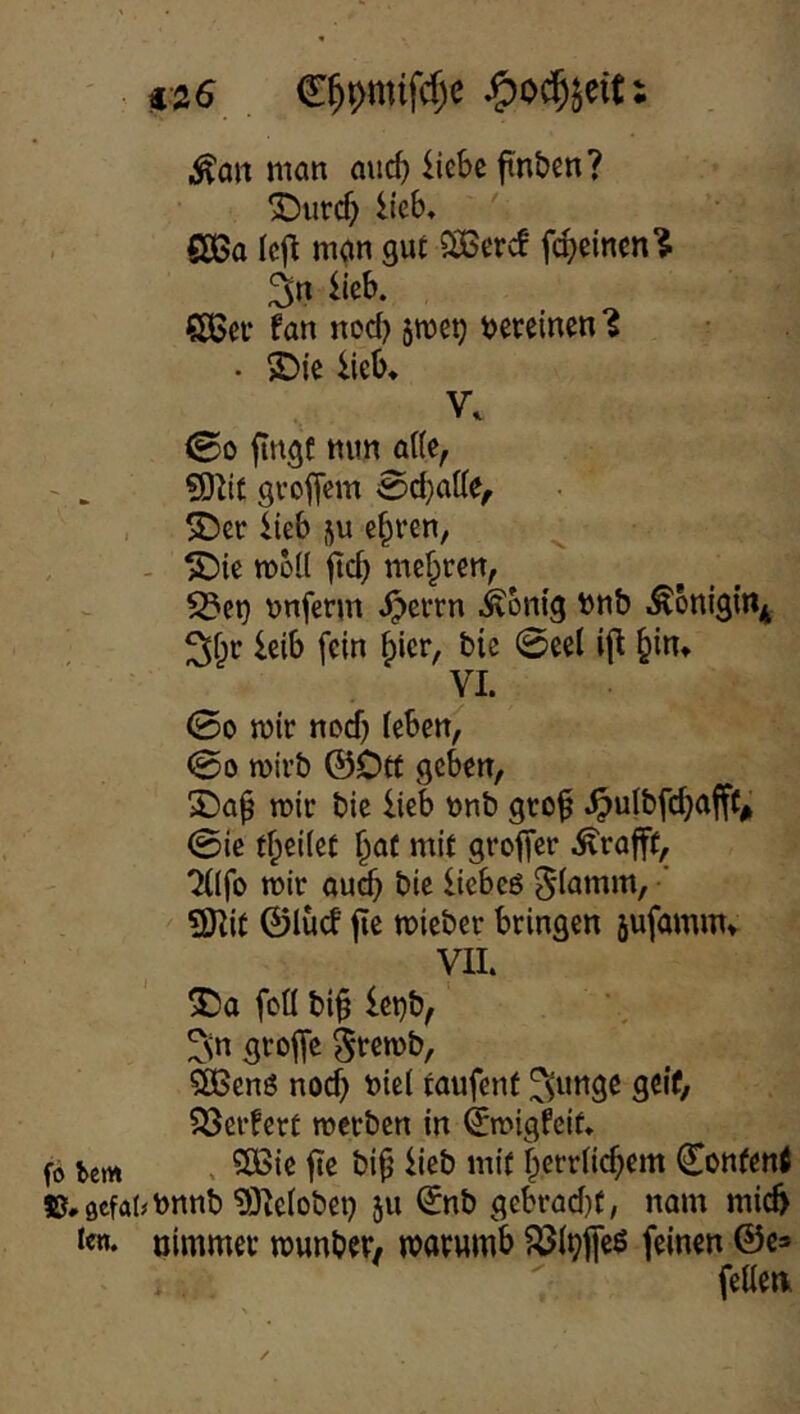 126 Chymische Hochzeit:
Kan man auch Liebe finden?
Durch Lieb.
Wa lest man gut Werck scheinen?
In Lieb.
Wer kan noch zwey vereinen?
Die Lieb.
V.
So singt nun alle,
Mit grossem Schalle,
Der Lieb zu ehren,
Die woll sich mehren,
Bey vnserm Herrn König vnd Königin,
Ihr Leib sein hier, die Seel ist hin.
VI.
So wir noch leben,
So wird GOtt geben,
Daß wir die Lieb vnd groß Huldschafft,
Sie theilet hat mit grosser Krafft,
Also wir auch die Liebes Flamm,
Mit Glück sie wieder bringen zusamm.
VII.
Da soll diß Leyd,
In grosse Frewd,
Wens noch viel tausent Junge geit,
Verkert werden in Ewigkeit.
Wie sie diß Lied mit herrlichem Content
vnnd Melobey zu End gebracht, nam mich
nimmer wunder, warumb Vlysses seinen Ge-
sellen
so dem
V. gefal-
len.